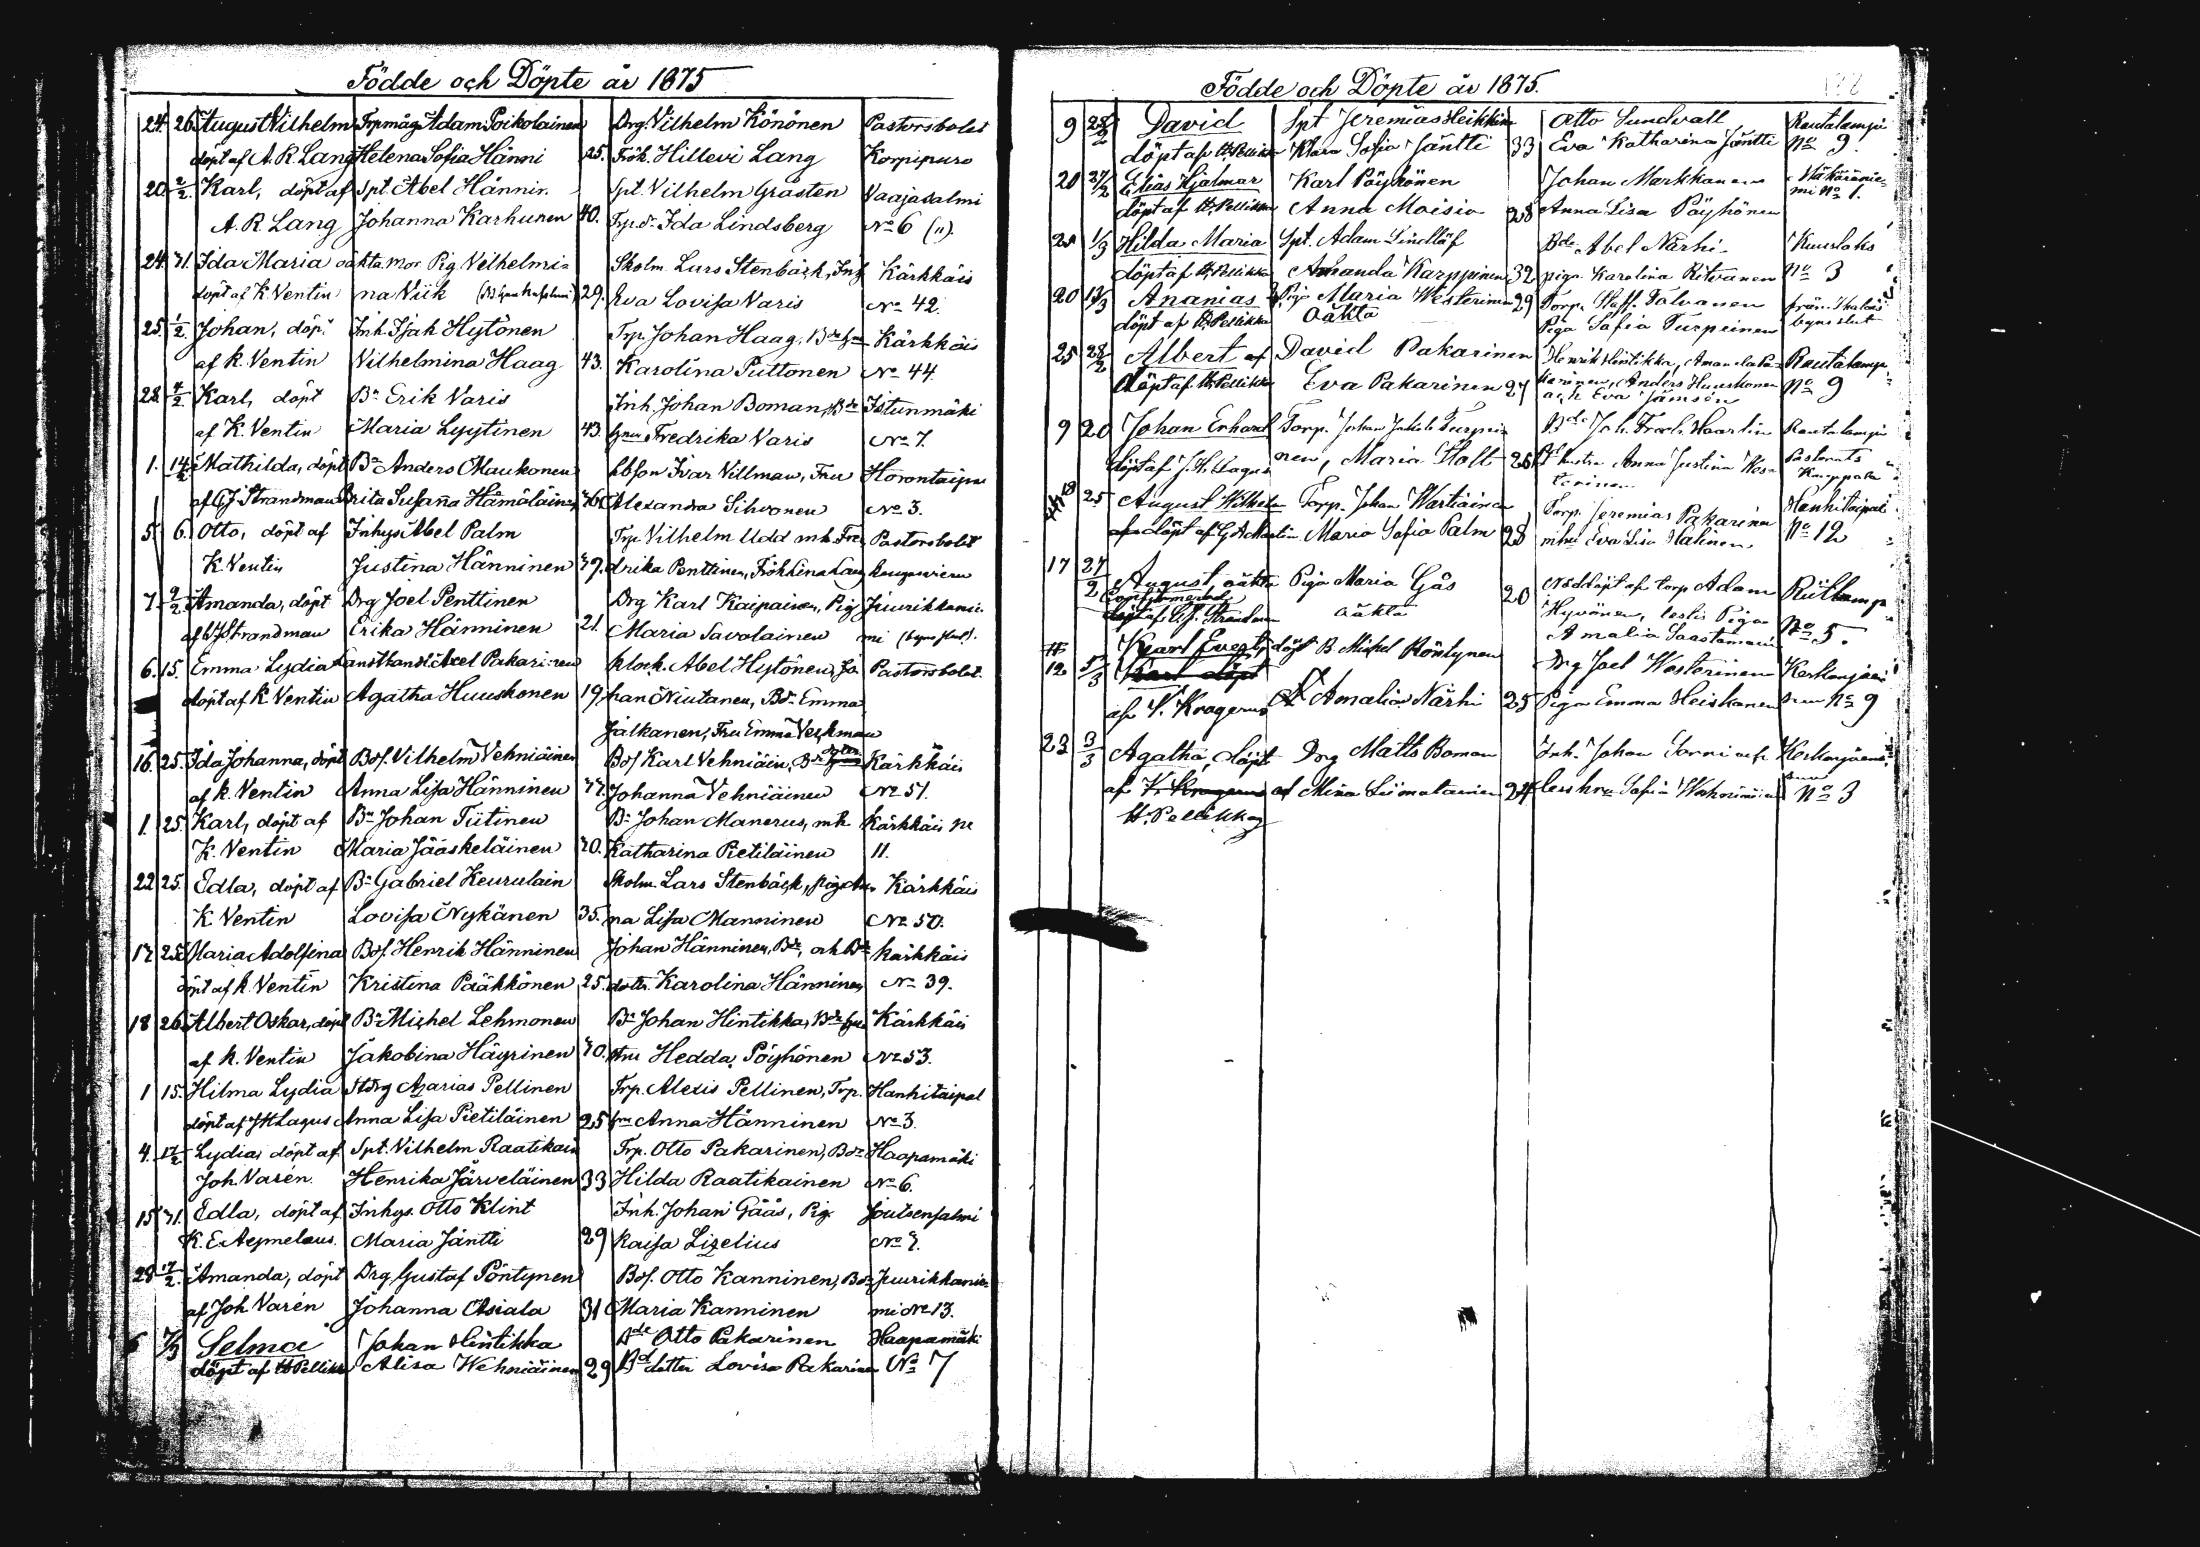 Födde och Döpte år 1875
24. 26. August Vilhelm Trpmåg Adam Poikolainen Drg. Vilhelm Könönen Pastorsbolet
döpt af A. R. Lang Helena Sofia Hänni 25. Frök. Hillevi Lang Korpipuro
20. 2/2. Karl, döpt af Spt. Abel Hännin. Spt. Vilhelm Gråsten Vaajasalmi
A. R. Lang Johanna Karhunen 40. Trp.dr Ida Lindsberg No 6 (").
24. 31. Ida Maria oäkta Mor Pig. Vilhelmi- Skolm. Lars Stenbäck, Inh. Kärkkäis
döpt af K. Ventin na Viik 29. Eva Lovisa Varis No 42.
25. 1/2. Johan, döpt Inh. Isak Hytönen Trp. Johan Haag, Kärkkäis
af K. Ventin Vilhelmina Haag 43. Karolina Puttonen No 44.
28. 4/2. Karl, döpt Bn Erik Varis Inh. Johan Boman, Bde Istunmäki
af K. Ventin Maria Lyytinen 43. hru Fredrika Varis No 7.
1. 14/2. Mathilda, döpt Bn Anders Maukonen Ivar Villman, Fru Horontaipa
af C. J. Strandman Brita Susanna Hämäläinen Alexandra Sihvonen No 3.
5. 6. Otto, döpt af Inhys Abel Palm Trp. Vilhelm Udd m.h. Fre- Pastorsbolet
K. Ventin Justina Hänninen 39. drika Penttinen, Frök Lina Lang
7. 9/2. Amanda, döpt Drg Joel Penttinen Drg Karl Kaipainen, Pig Juurikkanie-
af C. J. Strandman Erika Hänninen 21. Maria Savolainen mi
6. 15. Emma Lydia Axel Pakarinen klock. Abel Hytönen, Jo- Pastorsbolet.
döpt af K. Ventin Agatha Huuskonen 19 han Niutanen, Bdr Emma
Jalkanen, Fru Emma Veckman
16. 25. Ida Johanna, döpt Bof. Vilhelm Vehniäinen Bof Karl Vehniäin, Kärkkäis
af K. Ventin Anna Lisa Hänninen Johanna Vehniäinen No 51.
1. 25. Karl, döpt af Bn Johan Tiitinen Bn Johan Manerus, m.h. Kärkkäis No
K. Ventin Maria Jääskeläinen Katharina Pietiläinen 11.
22 25. Edla, döpt af Bn Gabriel Keurulain Skolm. Lars Stenbäck, Pig An- Kärkkäis
K. Ventin Lovisa Nykänen 35. na Lisa Manninen No 50.
17 25. Maria Adolfina Bof. Henrik Hänninen Johan Hänninen, Bde, och Bde Kärkkäis
döpt af K. Ventin Kristina Pääkkönen 25. dottr. Karolina Hänninen No 39.
18 26. Albert Oskar, döpt Bn Michel Lehmonen Bn Johan Hintikka, Kärkkäis
af K. Ventin Jakobina Häyrinen Hedda Pöyhönen No 53.
1 15. Hilma Lydia Azarias Pellinen Trp. Alexis Pellinen, Trp. Hankitaipal
döpt af J H Lagus Anna Lisa Pietiläinen 25 hru Anna Hänninen No 3.
4. 17/2 Lydia, döpt af Spt. Vilhelm Raatikain Trp. Otto Pakarinen, Bdr Haapamäki
Joh. Varén. Henrika Järveläinen 33 Hilda Raatikainen No 6.
15 31. Edla, döpt af Inhys. Otto Klint Inh. Johan Gåås, Pig. Joutsensalmi
K. E. Aejmelaus. Maria Jäntti 29 Kaisa Lizelius
28 17/2. Amanda, döpt Drg. Gustaf Pöntynen Bof. Otto Kanninen, Bdr Juurikkanie-
af Joh. Varén Johanna Asiala 31 Maria Kanninen mi No 13.
6 7/3 Selma Johan Hintikka Bde Otto Pakarinen Haapamäki
döpt af H Pellikka Alisa Wehniäinen 29 Bd dotter Lovisa Pakarinen No 7
Födde och Döpte år 1875.
9 28/2 David Spt Jeremias Heikkin Otto Sundvall Rautalampi
döpt af H. Pellikka Klara Sofia Jäntti 33 Eva Katharina Jäntti No 9
20 27/2 Elias Hjalmar Karl Pöyhönen Johan Markkanen
döpt af H. Pellikka Anna Moisio 28 Anna Lisa Pöyhönen mi No 1.
25 1/3 Hilda Maria Spt. Adam Lindlöf Bde Abel Närhi Kuuslaks
döpt af H. Pellikka Amanda Karppinen 32 piga Karolina Ritvanen No 3
20 13/3 Ananias Piga Maria Westerinen 29 Torp. Staff. Tolvanen från
döpt af H. Pellikka oäkta Piga Sofia Turpeinen
25 28/2 Albert David Pakarinen Henrik Hintikka, Amanda Pa- Rautalampi
döpt af H. Pellikka Eva Pakarinen 27 karinen, Anders Huuskonen No 9
och Eva Jämsén
9 20 Johan Erhard Torp. Johan Jakob Turpei- Bde Joh. Fredr. Haarlin Rautalampi
döpt af J. H. Lagus nen, Maria Holt 26 Anna Justina Pastorats
Karppala
25 August Wilhelm Torp. Johan Wartiainen Torp. Jeremias Pakarinen Hankitaipal
döpt af G A Maria Sofia Palm 28 m. hu Eva Lisa Halinen No 12
17 27/2 August, oäkta Piga Maria Gås 20 Nöddöpt af torp. Adam Rütlamp
döpt af C. J. Strandman oäkta Hyvönen, testis Piga No 5.
Amalia Saastamoin
12 5/3 Karl Evert, döpt B. Michel Röntynen Drg Joel Westerinen Kerkonjoen
Karl döpt
af V. Krogerus Amalia Närhi 25 Piga Emma Heiskanen No 9
23 3/3 Agatha, döpt Drg Matts Boman Inh. Johan Torni och Kerkonjoens
af K. Krogerus af Mina Liimatainen 24 dess hru Sofia No 3
H. Pellikka